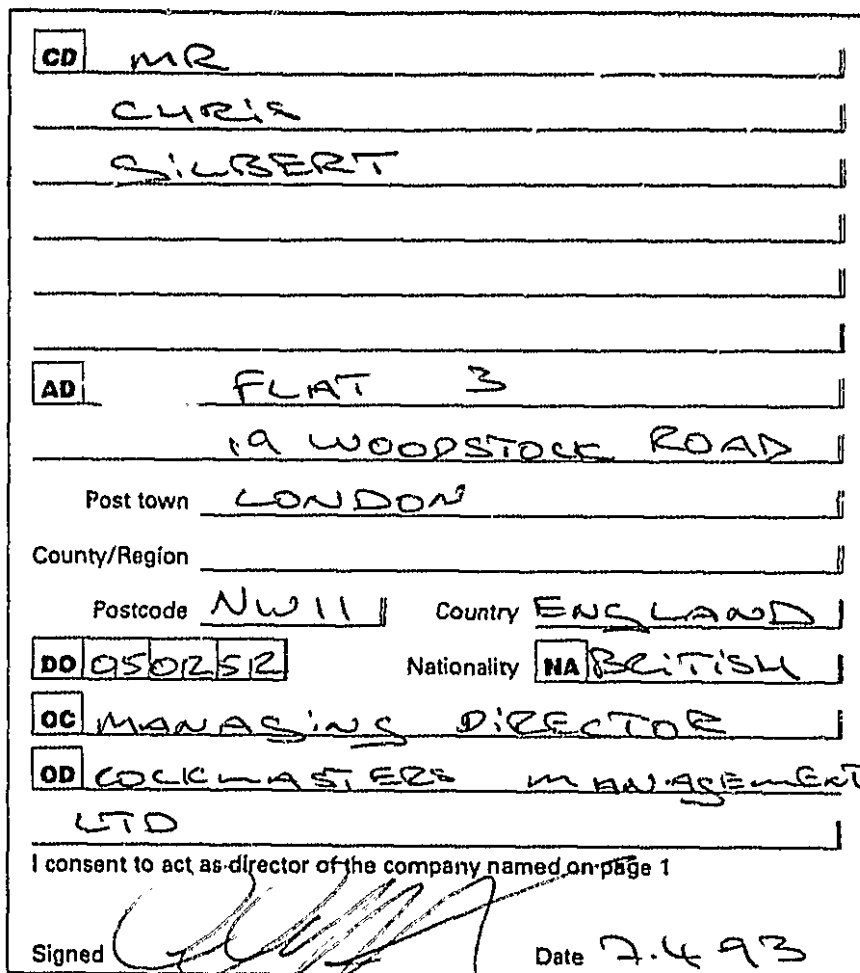 CD MR
CHRIS
SILBERT
AD FLAT 3
19 WOODSTOCK ROAD
Post town LONDON
County/Region
Postcode NW11 Country ENGLAND
DO 050252 Nationality NA BRITISH
OC MANAGING DIRECTOR
OD COCKMASTERS MANAGEMENT
LTD
I consent to act as director of the company named on page 1
Signed Date 7.4.93